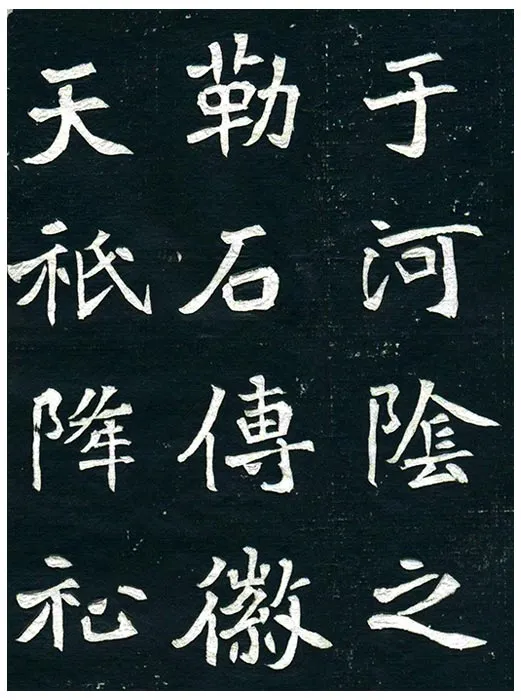 于河陰之
勒石傳徽
天祇降